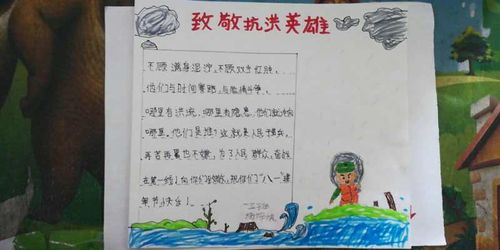 致敬抗洪英雄
不顾满身泥泞,不顾双手红肿,
他们与时间赛跑,与危情斗争,
哪里有洪流,哪里有隐患,他们就冲向
哪里。他们是谁?这就是人民子弟兵。
再苦再累也不嫌,为了人民群众,奋战
在第一线!向你们致敬,祝你们"八一"建
军节快乐!